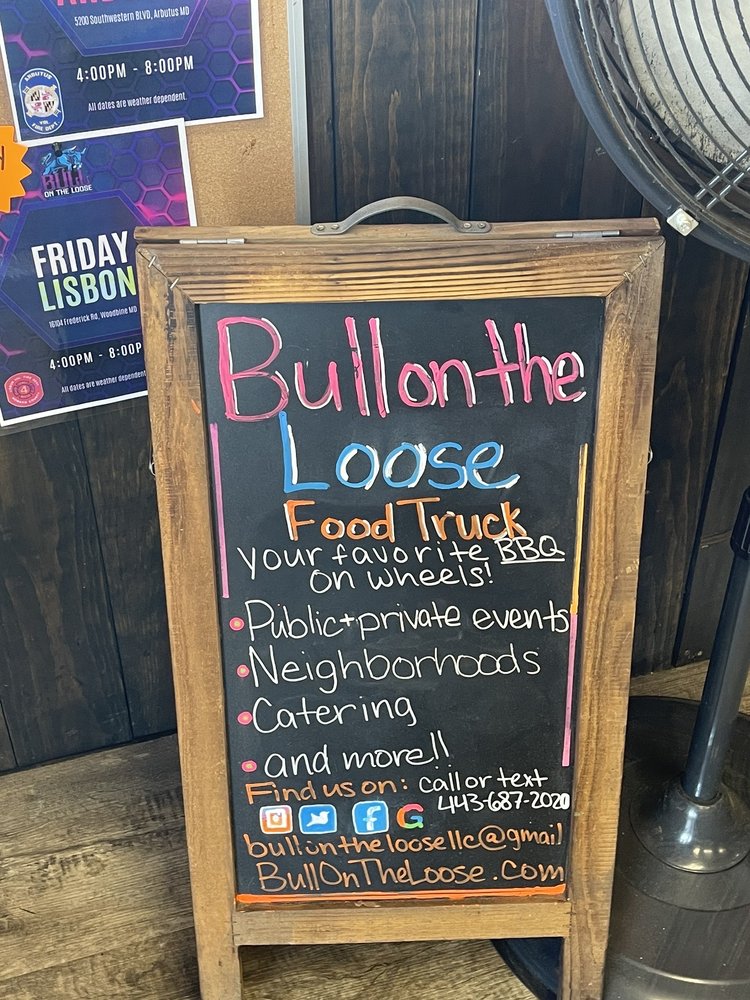 5200 Southwestern BLVD, Arbutus MD
4:00PM - 8:00PM
All dates are weather dependent.
ARBUTUS
VOL
FIRE DEPT
BULL
ON THE LOOSE
FRIDAY
LISBON
16104 Frederick Rd, Woodbine MD
4:00PM - 8:00P
All dates are weather dependent
4
Bull on the
Loose
Food Truck
your favorite BBQ
on wheels!
• Public + private events
• Neighborhoods
• Catering
• and more!!
Find us on: call or text
443-687-2020
f G
bullonthelloosellc@gmail
BullOnTheLoose.com